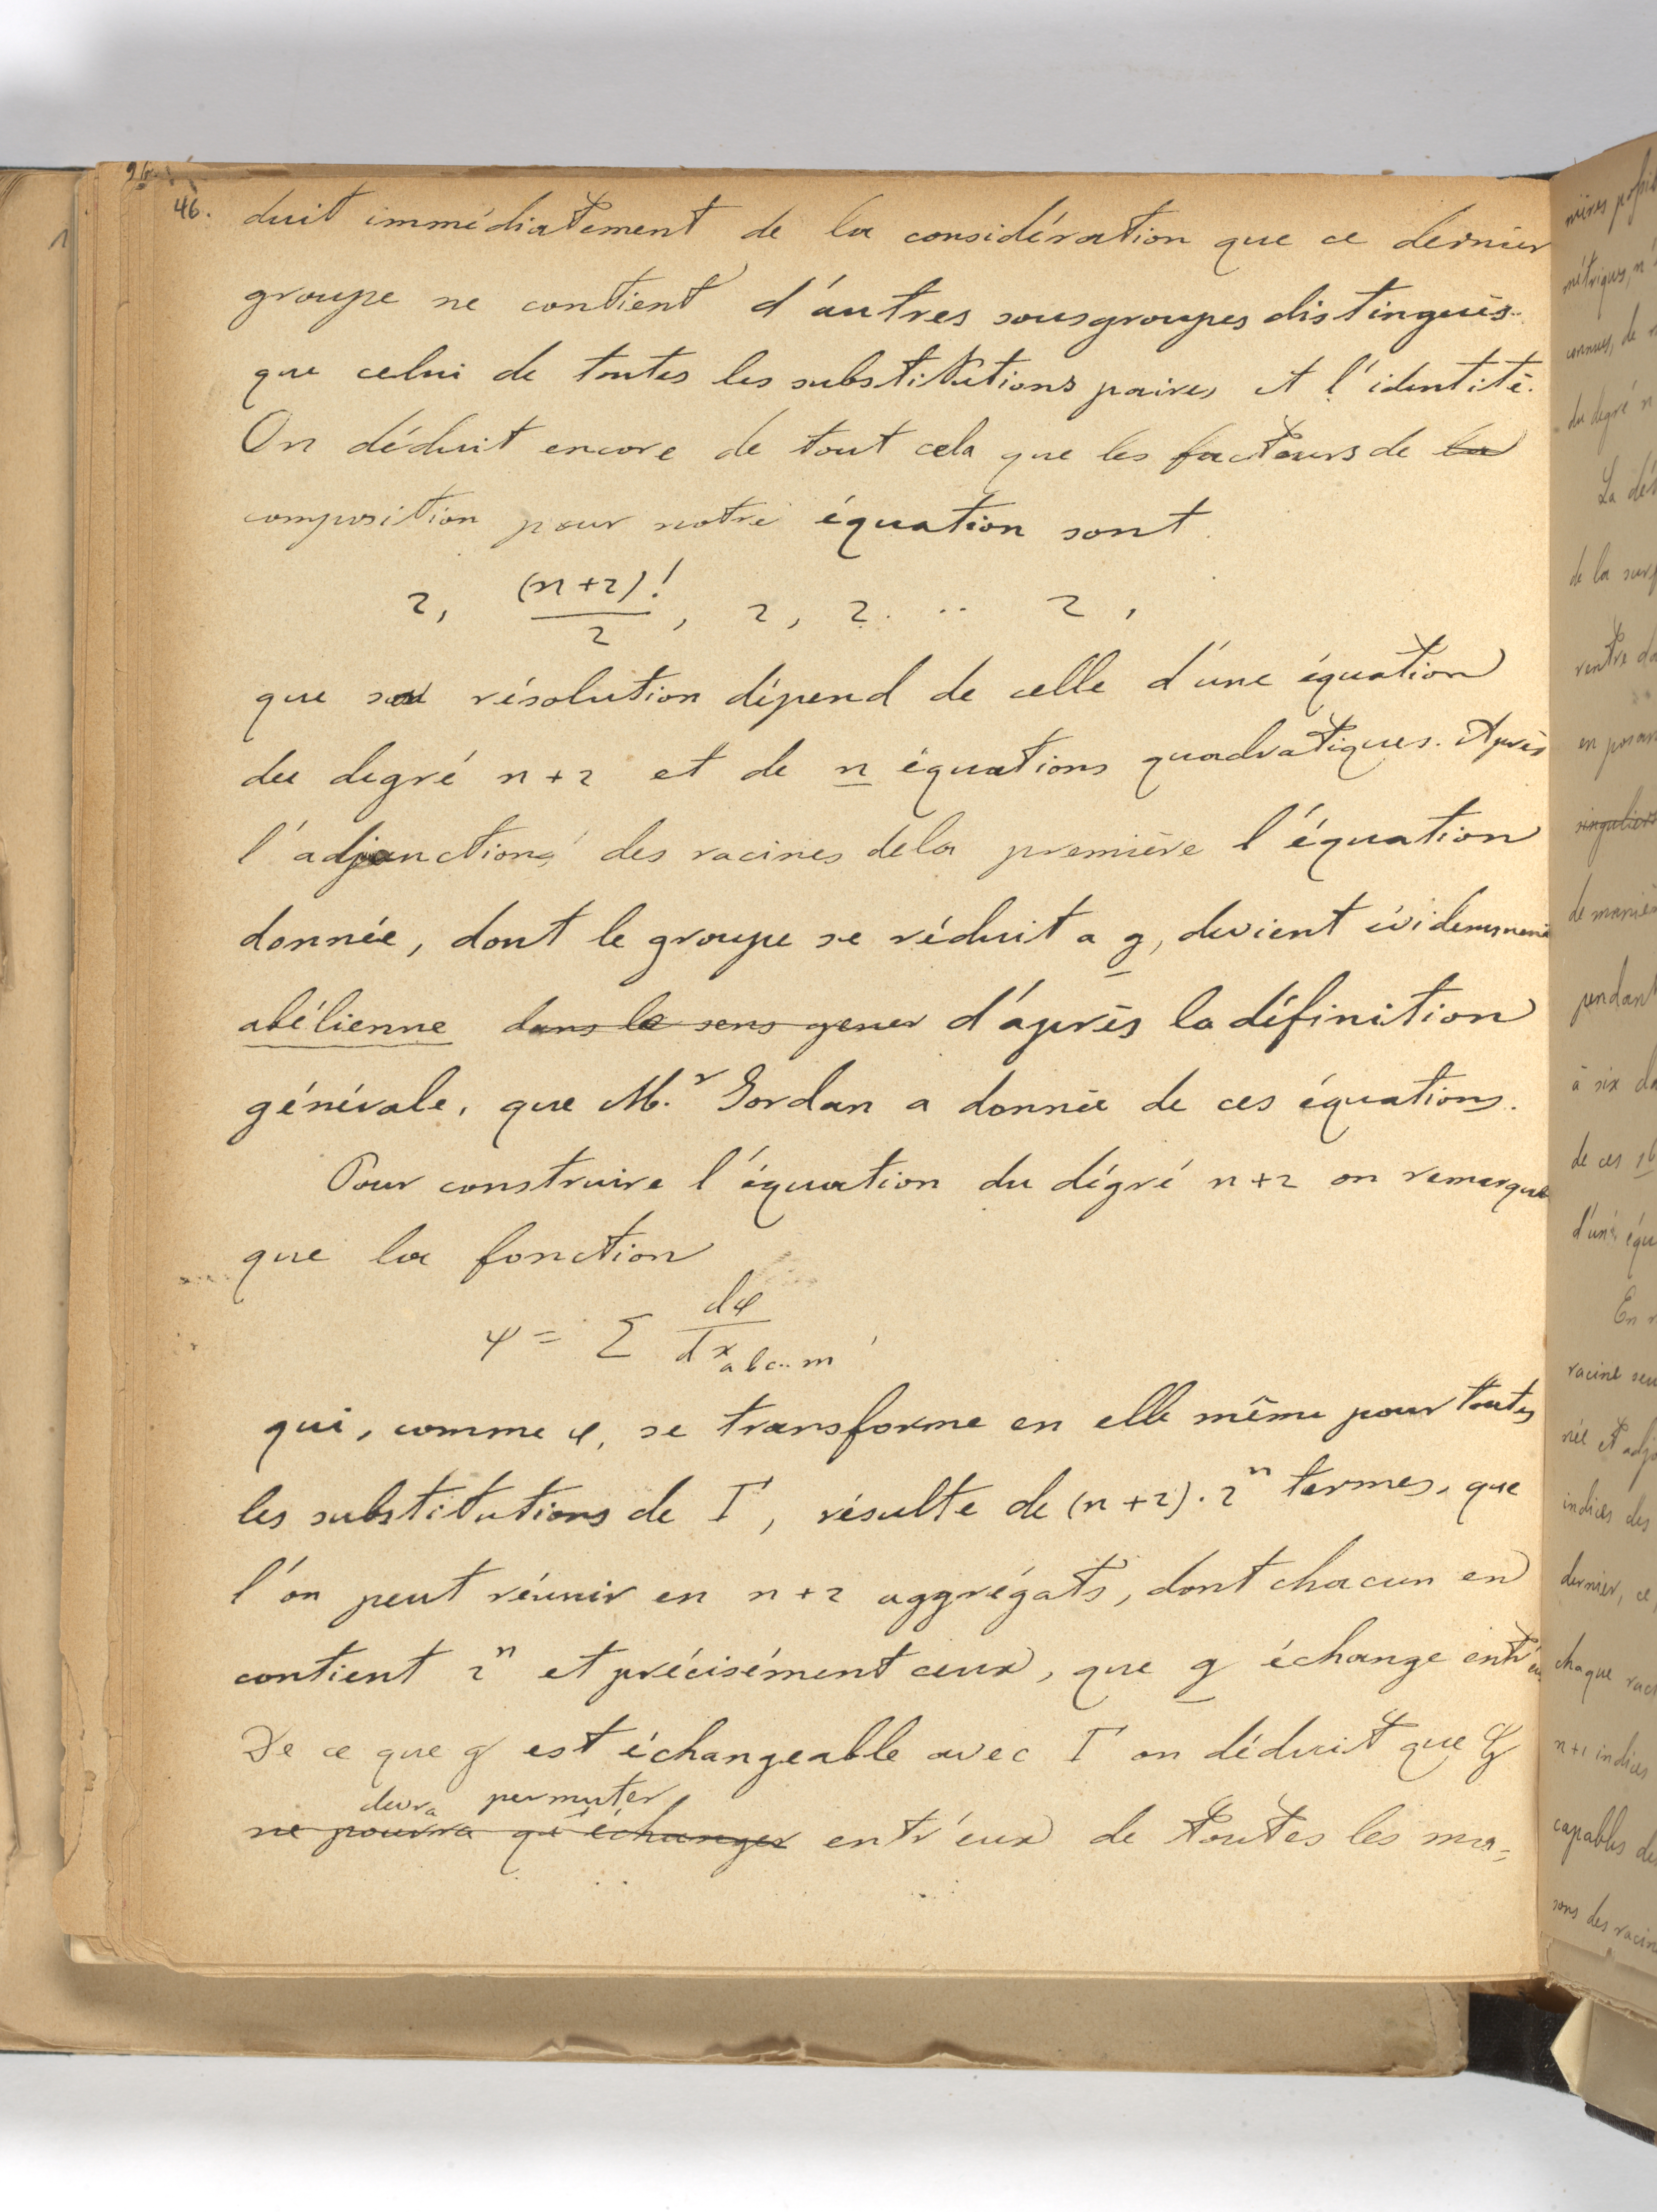 46.
duit immédiatement de la considération que ce dernier
groupe ne contient d'autres sousgroupes distingués
que celui de toutes les substitutions paires et l'identité.
On déduit encore de tout cela que les facteurs de la
composition pour notre équation sont
2, (n+2)!/2, 2, 2. .. 2,
que sa résolution dépend de celle d'une équation
du degré n+2 et de n équations quadratiques. Après
l'adjonction des racines de la première l'équation
donnée, dont le groupe se réduit a g, devient évidemment
abélienne dans le sens gener d'après la définition
générale, que M.r Jordan a donnée de ces équations.
Pour construire l'équation du dégré n+2 on remarque
que la fonction
ψ = Σ dφ/dx abc..m
qui, comme φ, se transforme en elle même pour toutes
les substitutions de Γ, résulte de (n+2).2^n termes, que
l'on peut réunir en n+2 aggrégats, dont chacun en
contient 2^n et précisément ceux, que g échange entr'eux
De ce que g est échangeable avec Γ on déduit que
devra permuter
ne pourra qu'échanger entr'eux de toutes les ma=
de la
en
pendant
à six
de ces 16
d'une équ
En
racine
indices des
dernier, ce
chaque
n+1 indices
capables de